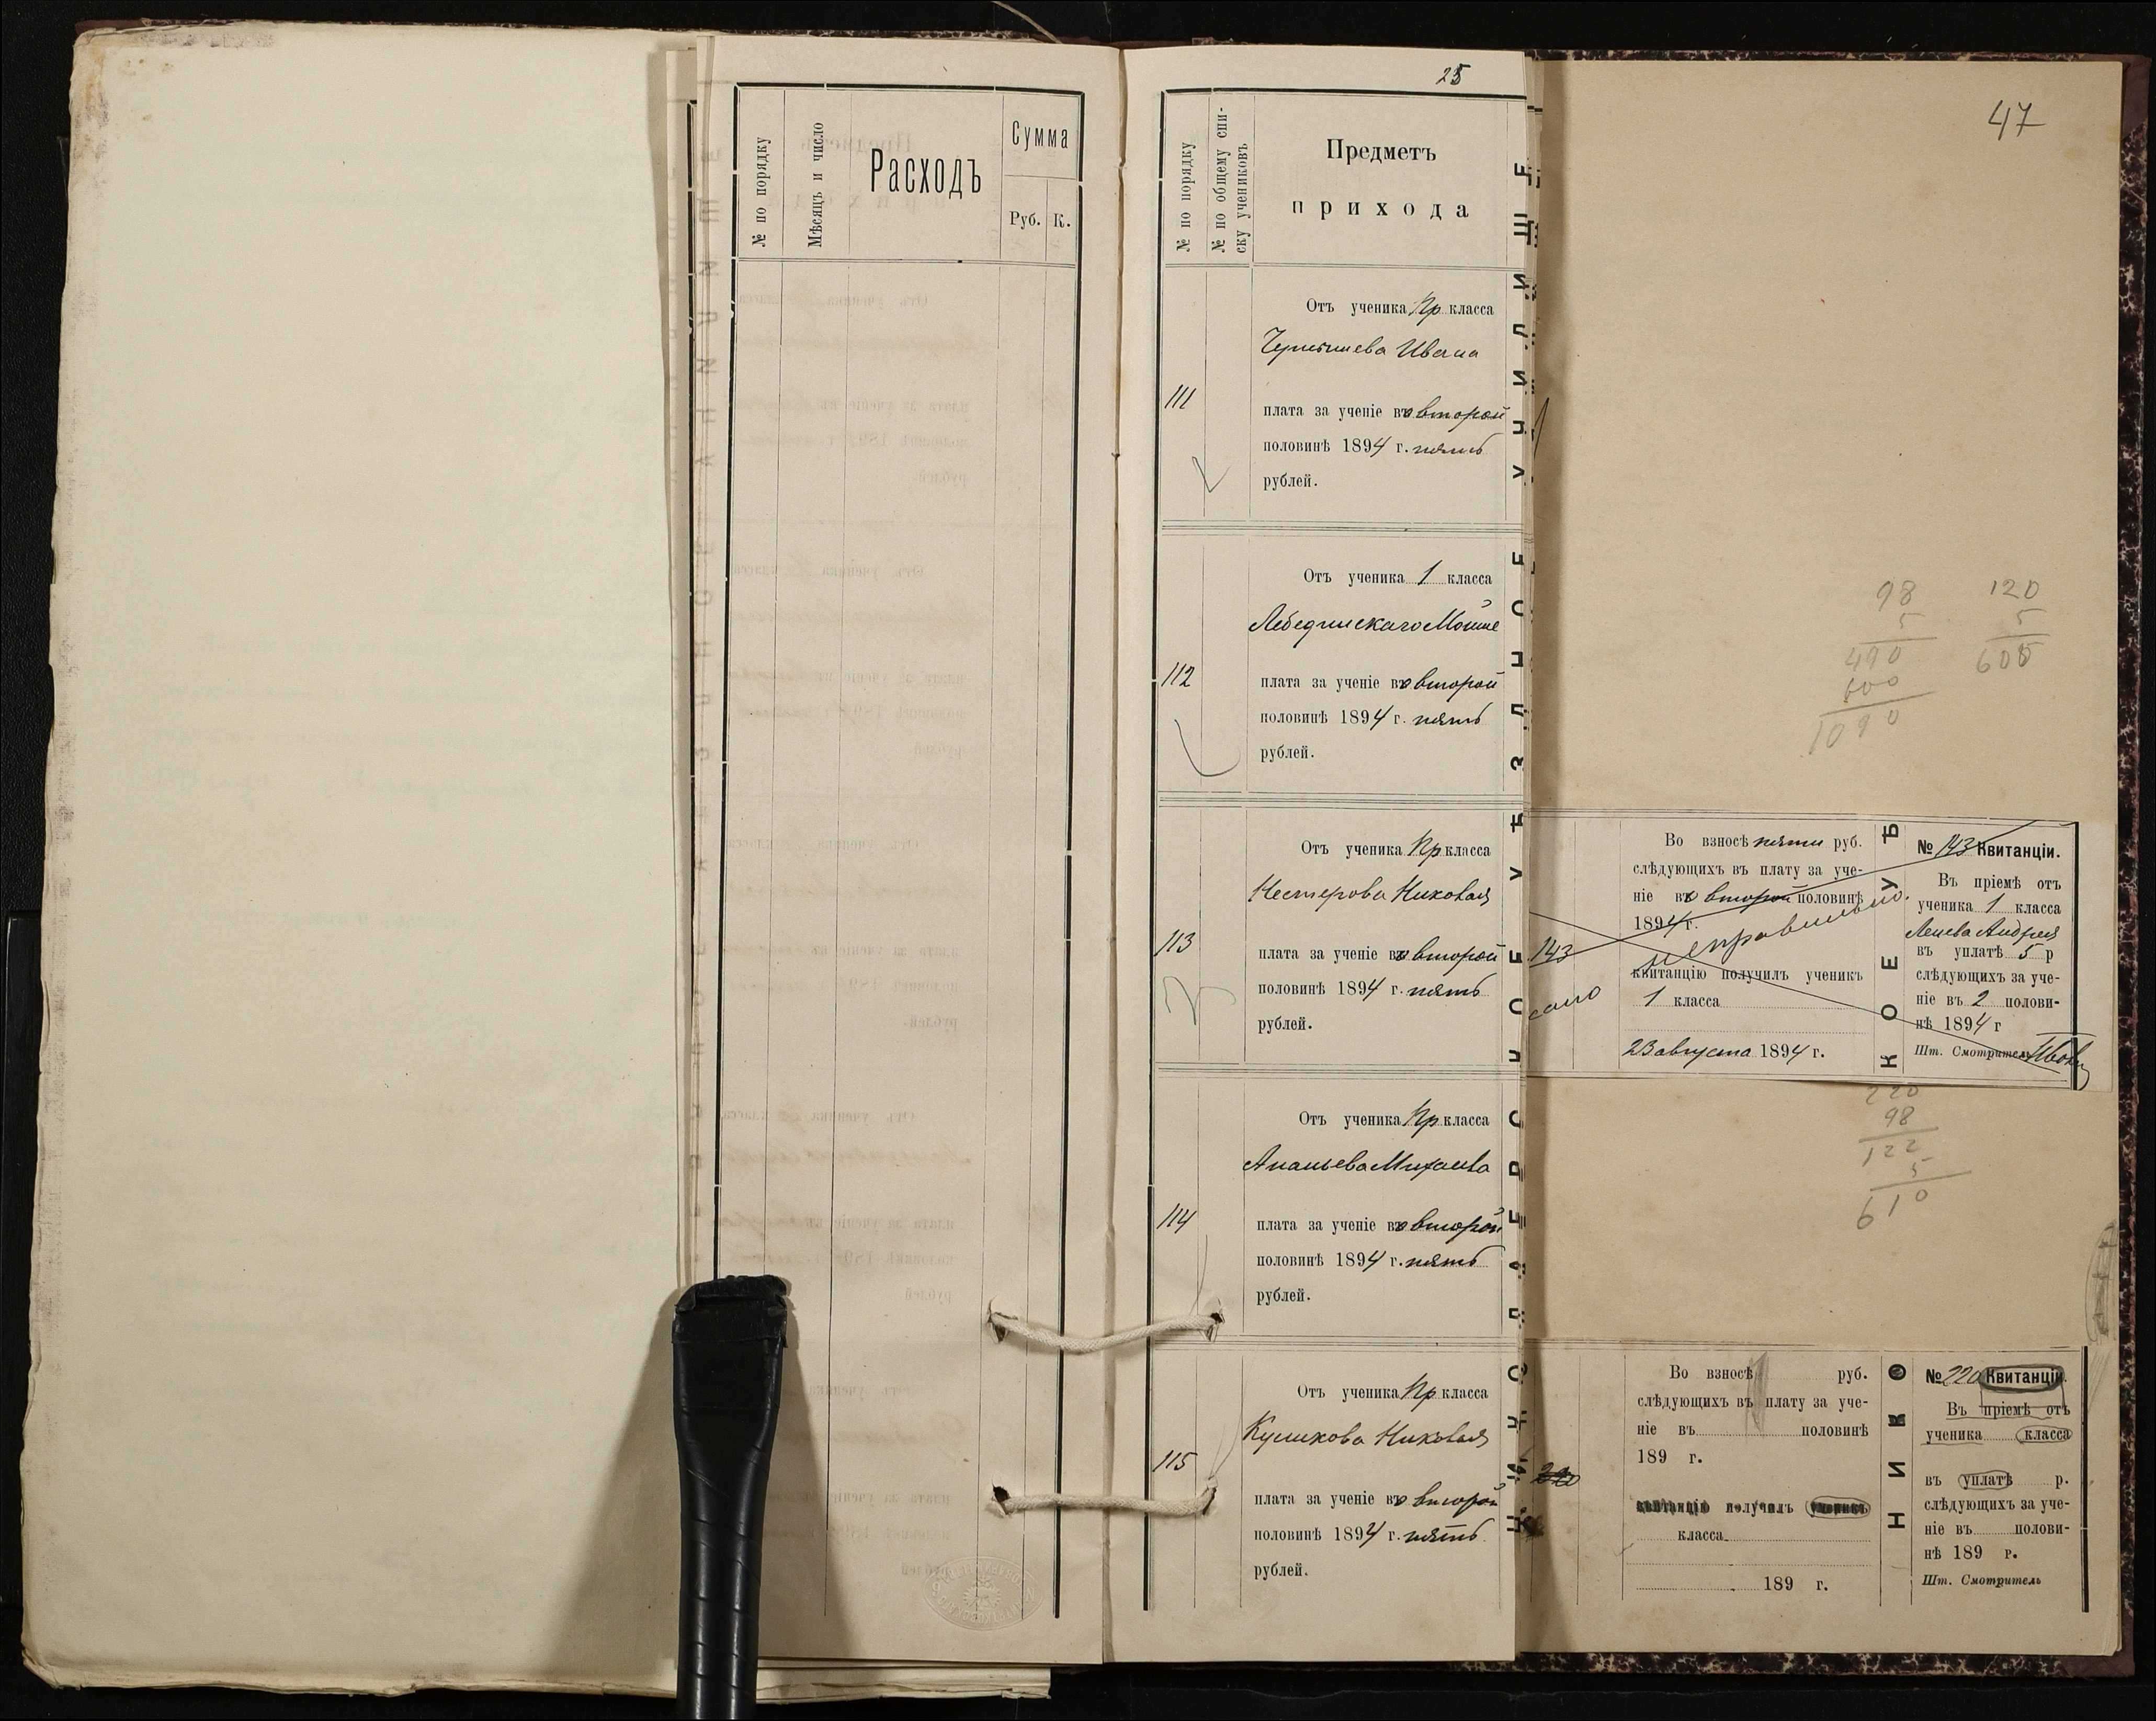 25
47
№ по порядку
Мѣсяцъ и число
Расходъ
Сумма
Руб. К.
№ по порядку
№ по общему спи-
ску учениковъ
Предметъ
прихода
Отъ ученика Пр класса
Чернышева Ивана
111
плата за ученіе во второй
половинѣ 1894 г. пять
рублей.
Отъ ученика 1 класса
Лебединскаго Мошне
112
плата за ученіе во второй
половинѣ 1894 г. пять
рублей.
Отъ ученика Пр класса
Нестерова Николая
113
плата за ученіе во второй
половинѣ 1894 г. пять
рублей.
Отъ ученика Пр класса
Ананьева Михаила
114
плата за ученіе во второй
половинѣ 1894 г. пять
рублей.
Отъ ученика Пр класса
Куликова Николая
115
плата за ученіе во второй
половинѣ 1894 г. пять
рублей.
УѢЗДНОЕ УЧИЛИЩЕ
98
5
490
600
1090
120
5
600
143
Во взносѣ пяти руб.
слѣдующихъ въ плату за уче-
ніе во второй половинѣ
1894 г.
неправильно
квитанцію получилъ ученикъ
1 класса
23 августа 1894 г.
КОЕ УѢ
№ 143 Квитанціи.
Въ пріемѣ отъ
ученика 1 класса
Андрея
въ уплатѣ 5 р
слѣдующихъ за уче-
ніе въ 2 полови-
нѣ 1894 г
Шт. Смотритель
220
98
122
5
610
220
Во взносѣ руб.
слѣдующихъ въ плату за уче-
ніе въ половинѣ
189 г.
квитанцію получилъ ученикъ
класса
189 г.
НИКО
№ 220 Квитанціи.
Въ пріемѣ отъ
ученика класса
въ уплатѣ р.
слѣдующихъ за уче-
ніе въ полови-
нѣ 189 г.
Шт. Смотритель